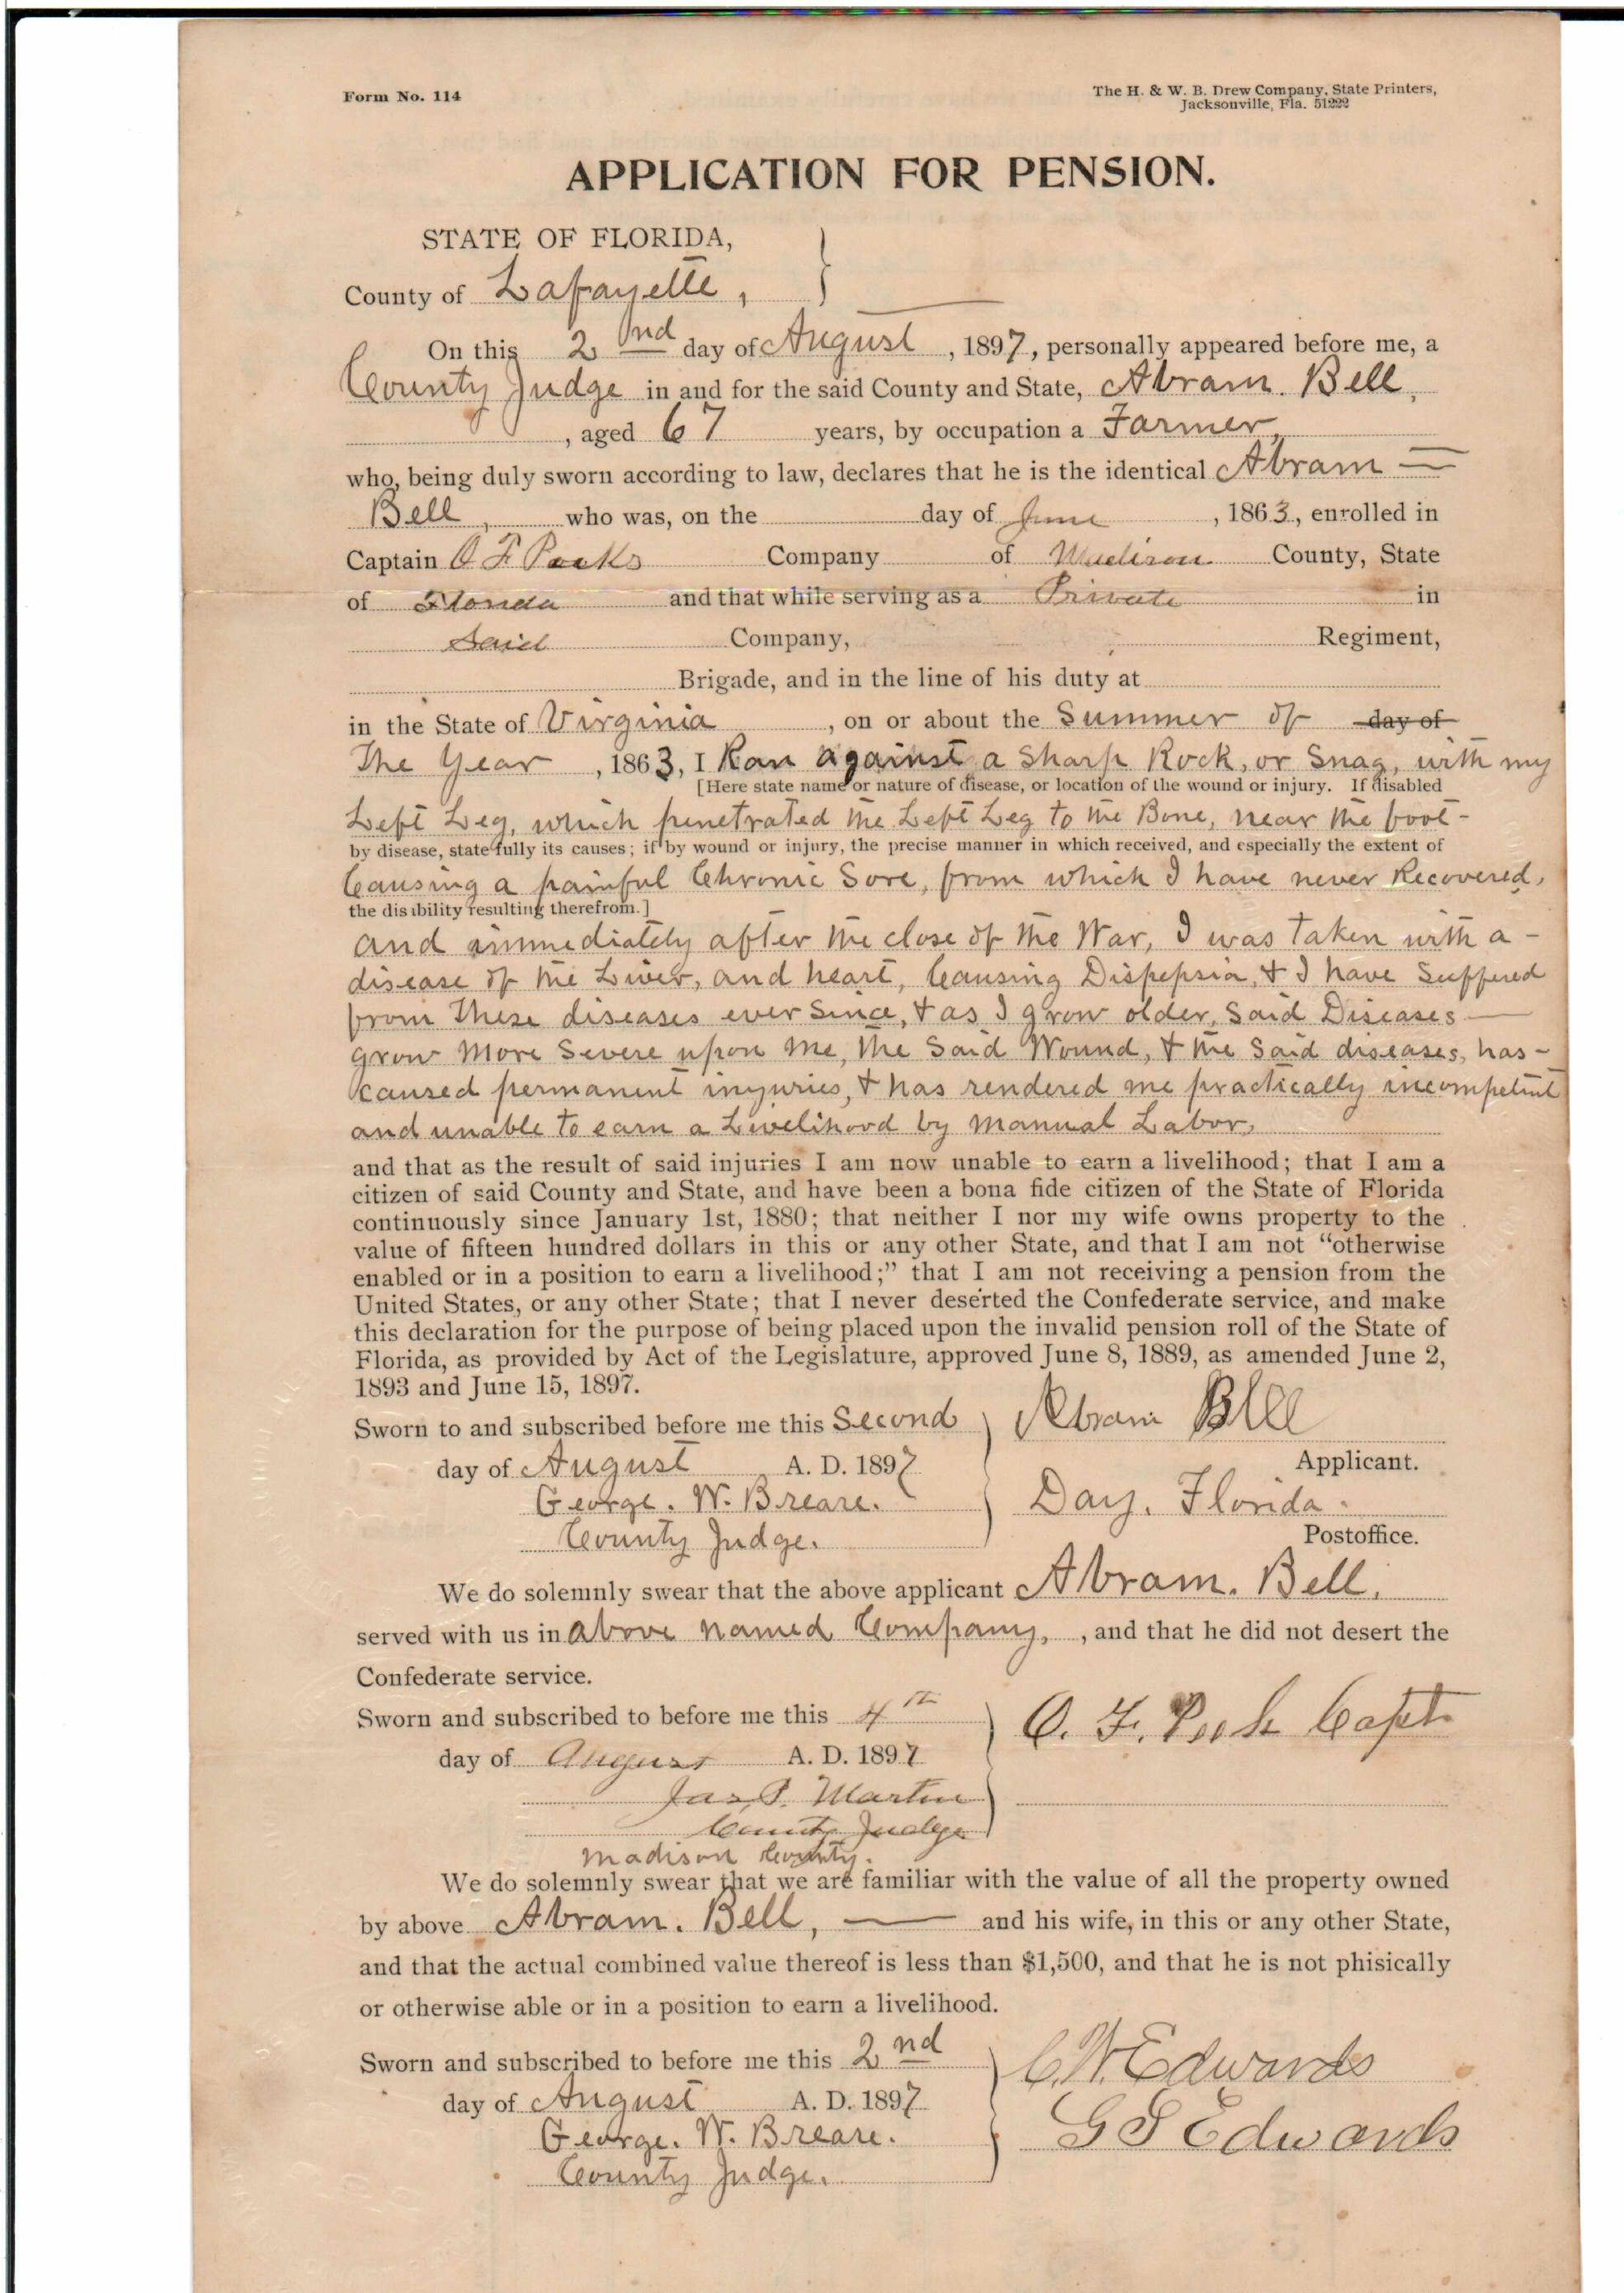 Form No. 114
The H. & W. B. Drew Company, State Printers,
Jacksonville, Fla. 51222
APPLICATION FOR PENSION.
STATE OF FLORIDA,
County of Lafayette,
On this 2nd day of August, 1897, personally appeared before me, a
County Judge in and for the said County and State, Abram. Bell,
, aged 67 years, by occupation a Farmer,
who, being duly sworn according to law, declares that he is the identical Abram
Bell, who was, on the day of June, 1863, enrolled in
Captain O F Company of Madison County, State
of Florida and that while serving as a Private in
Said Company, Regiment,
Brigade, and in the line of his duty at
in the State of Virginia, on or about the Summer of day of
The Year, 1863, I Ran against a Sharp Rock, or Snag, with my
[Here state name or nature of disease, or location of the wound or injury. If disabled
Left Leg, which penetrated the Left Leg to the Bone, near the foot-
by disease, state fully its causes; if by wound or injury, the precise manner in which received, and especially the extent of
Causing a painful Chronic Sore, from which I have never Recovered,
the disibility resulting therefrom.]
and immediately after the close of the War, I was taken with a -
disease of the Liver, and heart, Causing Dispepsia, & I have Suffered
from These diseases ever Since, & as I grow older, Said Diseases
grow More Severe upon Me, the Said Wound, & the Said diseases, has -
caused permanent injuries, & has rendered me practically incompetent
and unable to earn a Livelihood by Manual Labor,
and that as the result of said injuries I am now unable to earn a livelihood; that I am a
citizen of said County and State, and have been a bona fide citizen of the State of Florida
continuously since January 1st, 1880; that neither I nor my wife owns property to the
value of fifteen hundred dollars in this or any other State, and that I am not “otherwise
enabled or in a position to earn a livelihood;” that I am not receiving a pension from the
United States, or any other State; that I never deserted the Confederate service, and make
this declaration for the purpose of being placed upon the invalid pension roll of the State of
Florida, as provided by Act of the Legislature, approved June 8, 1889, as amended June 2,
1893 and June 15, 1897.
Sworn to and subscribed before me this Second
Abram Bell
day of August A. D. 1897
Applicant.
George. W. Breare.
Day, Florida.
County Judge.
Postoffice.
We do solemnly swear that the above applicant Abram. Bell,
served with us in above named Company, , and that he did not desert the
Confederate service.
Sworn and subscribed to before me this 4th
O. F. Capt.
day of August A. D. 1897
Jas. P. Martin
County Judge
Madison County.
We do solemnly swear that we are familiar with the value of all the property owned
by above Abram. Bell, and his wife, in this or any other State,
and that the actual combined value thereof is less than $1,500, and that he is not phisically
or otherwise able or in a position to earn a livelihood.
Sworn and subscribed to before me this 2nd
C. W. Edwards
day of August A. D. 1897
G S Edwards
George. W. Breare.
County Judge.